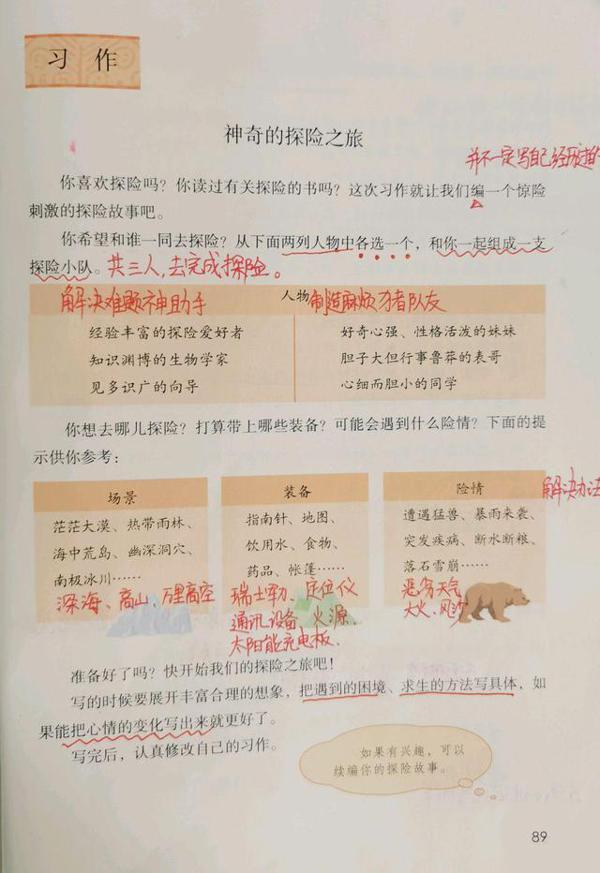 习 作
神奇的探险之旅
并不一定写自己经历过的
你喜欢探险吗？你读过有关探险的书吗？这次习作就让我们编一个惊险
刺激的探险故事吧。
你希望和谁一同去探险？从下面两列人物中各选一个，和你一起组成一支
探险小队。共三人，去完成探险。
解决难题神助手 人物 制造麻烦猪队友
经验丰富的探险爱好者 好奇心强、性格活泼的妹妹
知识渊博的生物学家 胆子大但行事鲁莽的表哥
见多识广的向导 心细而胆小的同学
你想去哪儿探险？打算带上哪些装备？可能会遇到什么险情？下面的提
示供你参考：
场景
茫茫大漠、热带雨林、
海中荒岛、幽深洞穴、
南极冰川……
深海、高山、万里高空
装备
指南针、地图、
饮用水、食物、
药品、帐篷……
瑞士军刀、定位仪
通讯设备、火源、
太阳能充电板、
险情 解决办法
遭遇猛兽、暴雨来袭、
突发疾病、断水断粮、
落石雪崩……
恶劣天气
大火、
准备好了吗？快开始我们的探险之旅吧！
写的时候要展开丰富合理的想象，把遇到的困境、求生的方法写具体，如
果能把心情的变化写出来就更好了。
写完后，认真修改自己的习作。
如果有兴趣，可以
续编你的探险故事。
89